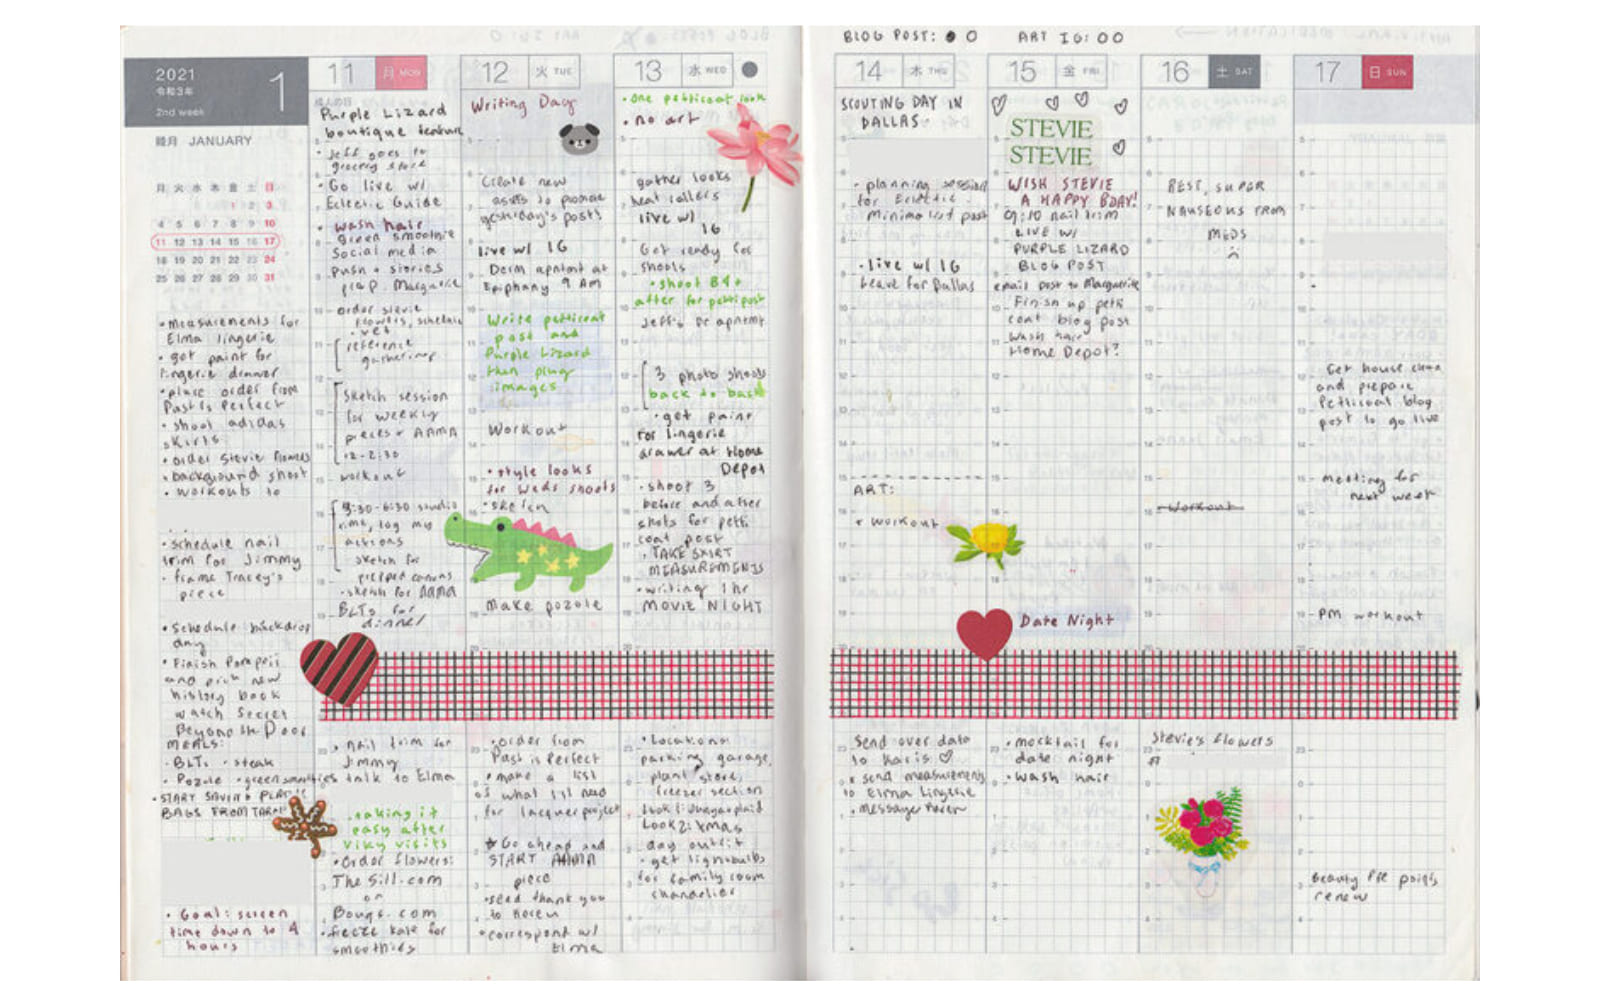 BLOG POST:
ART IG:
2021
令和3年
2nd week
1
睦月 JANUARY
月 火 水 木 金 土 日
1 2 3
4 5 6 7 8 9 10
11 12 13 14 15 16 17
18 19 20 21 22 23 24
25 26 27 28 29 30 31
• measurements for
Elma lingerie
• got paint for
lingerie drawer
• place order from
Past is Perfect
• shoot adidas
skirts
• order Stevie flowers
• background shoot
• workouts to
• schedule nail
trim for Jimmy
• frame Tracey's
piece
• Schedule backdrop
day
• Finish Pompeii
and pick new
history book
watch Secret
Beyond the Door
MEALS:
• BLTs • steak
• Pozole • green smoothies
• START SAVING PLASTIC
BAGS FROM TARGET
• Goal: screen
time down to 4
hours
11 月 MON
成人の日
Purple Lizard
boutique feature
• Jeff goes to
grocery store
• Go live w/
Eclectic Guide
• wash hair
green smoothie
Social media
push + stories
prep Marguerite
order stevie
flowers, schedule
• vet
reference
gathering
Sketch session
for weekly
pieces + AAMA
12-2:30
workout
3:30-6:30 studio
time, log my
actions
sketch for
prepped canvas
• sketch for AAMA
BLTs for
dinner
• nail trim for
Jimmy
talk to Elma
• taking it
easy after
Viky visits
• Order flowers:
The Sill.com
or
Bouqs.com
• freeze kale for
smoothies
12 火 TUE
Writing Day
Create new
assets to promote
yesterday's posts
live w/ IG
Derm apntmt at
Epiphany 9 AM
Write petticoat
post and
Purple Lizard
then plug
images
Workout
• style looks
for Weds shoots
• sketch
Make pozole
• order from
Past is Perfect
• make a list
of what I'll need
for lacquer project
* Go ahead and
START AAMA
piece
• send thank you
to Karen
• correspond w/
Elma
13 水 WED
• one petticoat look
• no art
gather looks
heat rollers
live w/
IG
Get ready for
shoots
• shoot B4 +
after for petti post
Jeff's Dr apntmt
3 photo shoots
back to back
• get paint
for lingerie
drawer at Home
Depot
• shoot 3
before and after
shots for petti
coat post
• TAKE SKIRT
MEASUREMENTS
• writing 1 hr
MOVIE NIGHT
• Locations:
parking garage,
plant store,
freezer section
Look 2: Xmas
day outfit
• get lightbulbs
for family room
chandelier
14 木 THU
SCOUTING DAY IN
DALLAS
• planning session
for Eclectic
Minimalist post
• live w/ IG
Leave for Dallas
ART:
• workout
Send over data
to Karis ♡
• send measurements
to Elma Lingerie
• message Karen
15 金 FRI
STEVIE
STEVIE
WISH STEVIE
A HAPPY BDAY!
9:10 nail trim
LIVE W/
PURPLE LIZARD
BLOG POST
email post to Marguerite
Finish up petti
coat blog post
wash hair
Home Depot?
Date Night
• mocktail for
date night
• wash hair
16 土 SAT
REST, SUPER
NAUSEOUS FROM
MEDS
workout
Stevie's flowers
17 日 SUN
Get house clean
and prepare
Petticoat blog
post to go live
meeting for
next week
PM workout
Beauty Pie points
renew